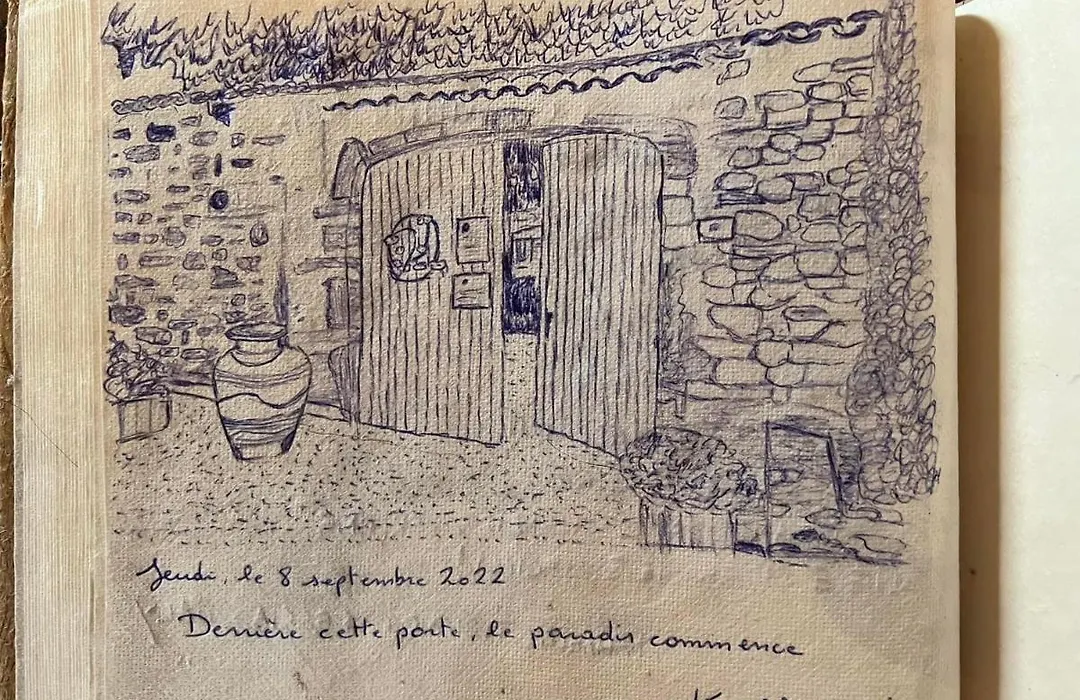 Jeudi, le 8 septembre 2022
Derrière cette porte, le paradis commence